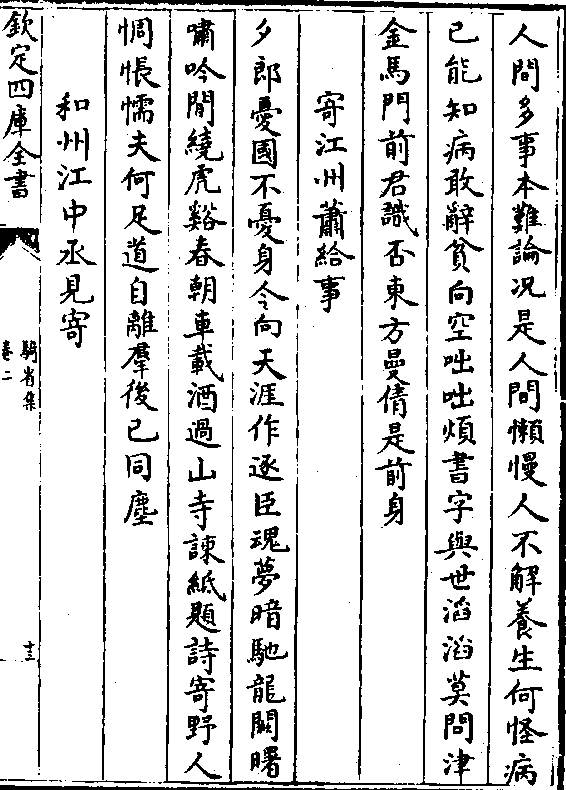 人間多事本難論况是人間懶慢人不解養生何怪病
已能知病敢辭貧向空咄咄煩書字與世滔滔莫問津
金馬門前君識否東方曼倩是前身
寄江州蕭給事
夕郎憂國不憂身今向天涯作逐臣魂夢暗馳龍闕曙
嘯吟閒繞虎谿春朝車載酒過山寺諫紙題詩寄野人
惆悵懦夫何足道自離羣後已同塵
和州江中丞見寄
欽定四庫全書
騎省集
卷二
十三